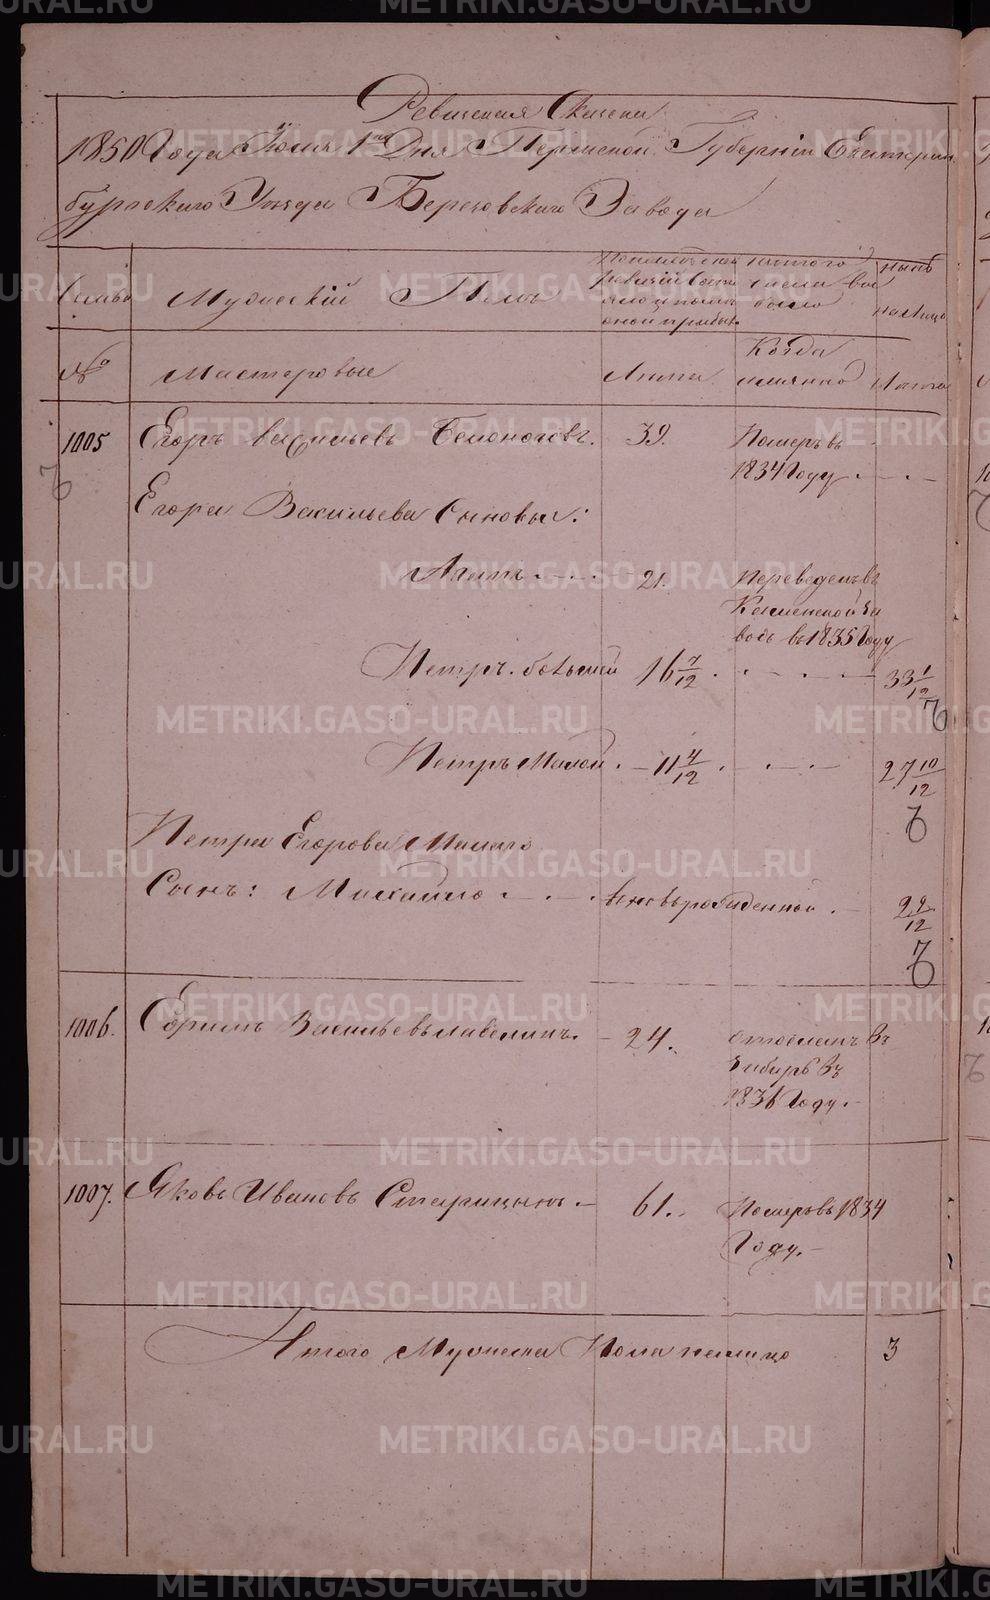 Ревизская Сказка
1850 Года Июля 1го Дня Пермской Губернiи Екатерин
бургского Уезда Березовского Завода
Семьи Мужескiй Полъ
По последней ревизiи состояло и после оной прибыло
Изъ того числа выбыло
Нынѣ на лицо
№ Мастеровые Лѣта Когда именно Лѣта
1005 Егоръ Васильевъ Белоноговъ. 39. Померъ въ
1834 Году
Егора Васильева Сыновья:
21. Переведенъ въ
Каменской За
водъ въ 1835 Году
Петръ большей 16 7/12 33 1/12
Петръ Малой 11 4/12 27 10/12
Петра Егорова Малаго
Сынъ: Михайло вновьрожденной 2 9/12
1006. Ефимъ Васильевъ 24. отосланъ въ
Сибирь въ
Году.
1007. Яковъ Ивановъ Старицынъ 61. Померъ въ 1834
Году.
Итого Мужеска Пола налицо 3
METRIKI.GASO-URAL.RU